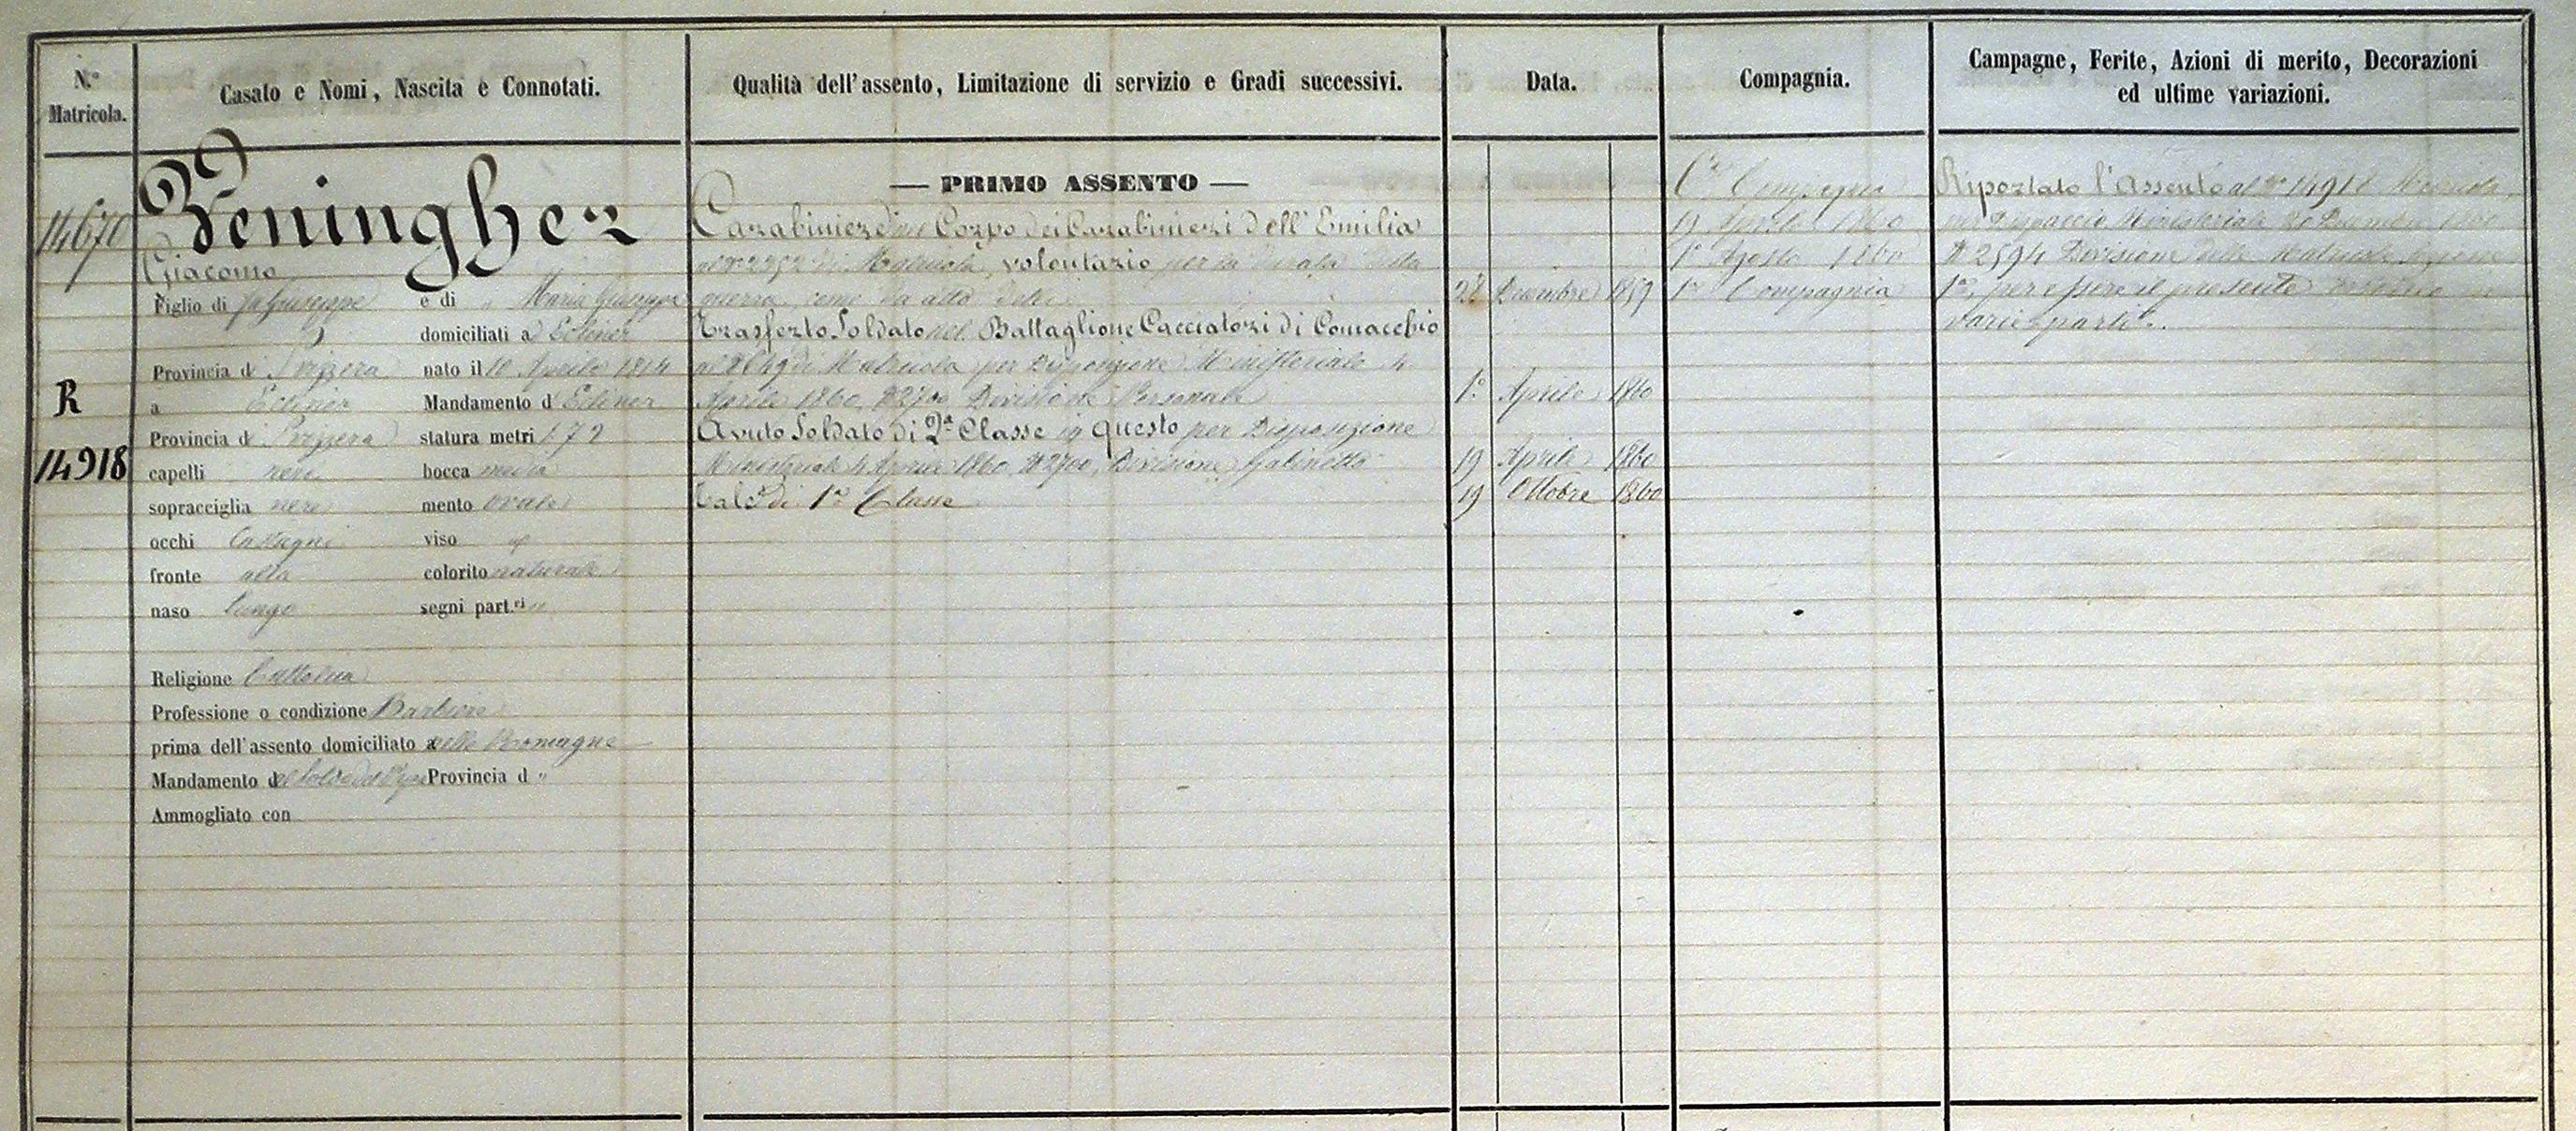 N.º
Matricola.
Casato e Nomi, Nascita e Connotati.
Qualità dell'assento, Limitazione di servizio e Gradi successivi.
Data.
Compagnia.
Campagne, Ferite, Azioni di merito, Decorazioni
ed ultime variazioni.
14670
Zeningher
Giacomo
Figlio di fu Giuseppe e di " Maria Giuseppa
domiciliati a
Provincia di Svizzera nato il 10 Aprile 1814
a Mandamento d
Provincia di Svizzera statura metri 1.72
R
14918
capelli neri bocca media
sopracciglia neri mento ovale
occhi Castagni viso
fronte alta colorito naturale
naso lungo segni part.ri "
Religione Cattolica
Professione o condizione Barbiere
prima dell'assento domiciliato nelle Romagne
Mandamento d Provincia d "
Ammogliato con
— PRIMO ASSENTO —
Carabiniere nel Corpo dei Carabinieri dell'Emilia
di Matricola, volontario per la durata della
guerra, come da atto detto 28 Dicembre 1859
Trasferto Soldato nel Battaglione Cacciatori di Comacchio
di Matricola per Disposizione Ministeriale 4
Aprile 1860, N 2700 Divisione Personale 1º Aprile 1860
Avuto Soldato di 2ª Classe in questo per Disposizione
Ministeriale 4 Aprile 1860, N 2700, Divisione Gabinetto 19 Aprile 1860
Tale di 1ª Classe 19 Ottobre 1860
Compagnia
19 Aprile 1860
1º Agosto 1860
1ª Compagnia
Riportato l'Assento al Nº 14918 Matricola,
per Dispaccio Ministeriale 20 Dicembre 1860
N 2594 Divisione delle Matricole Sezione
1ª, per essere il presente
varie parti.